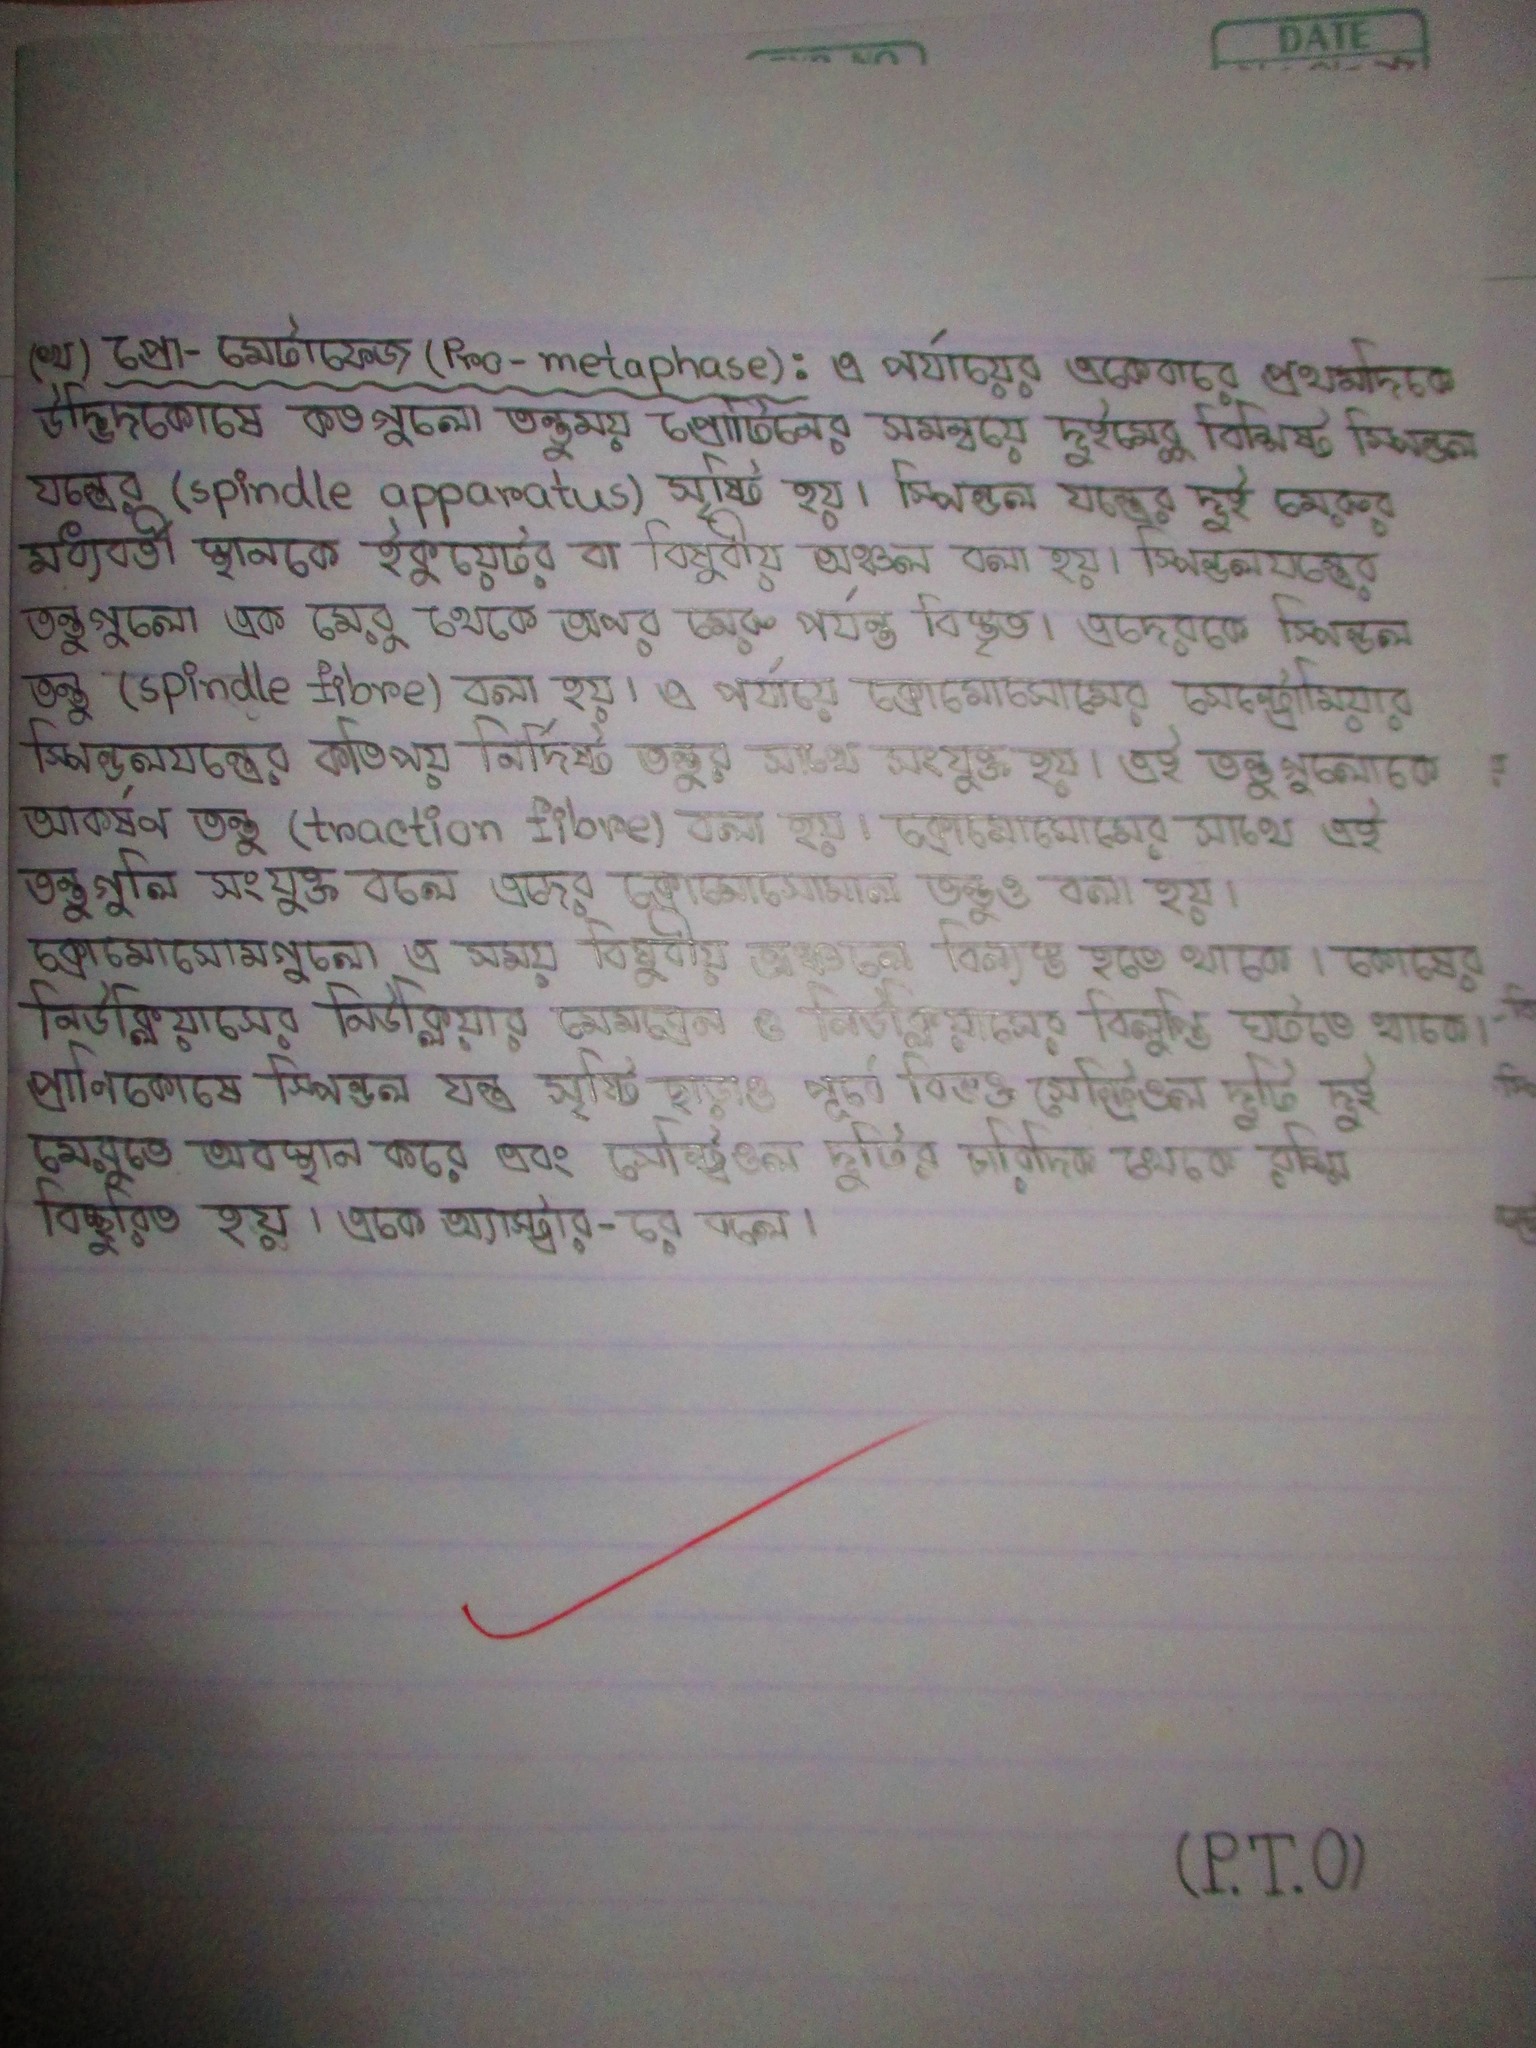 DATE
(খ) প্রো-মেটাফেজ (Pro-metaphase): এ পর্যায়ের একেবারে প্রথমদিকে
উদ্ভিদকোষে কতগুলো তন্তুময় প্রোটিনের সমন্বয়ে দুইমেরু বিশিষ্ট স্পিন্ডল
যন্ত্রের (spindle apparatus) সৃষ্টি হয়। স্পিন্ডল যন্ত্রের দুই মেরুর
মধ্যবর্তী স্থানকে ইকুয়েটর বা বিষুবীয় অঞ্চল বলা হয়। স্পিন্ডলযন্ত্রের
তন্তুগুলো এক মেরু থেকে অপর মেরু পর্যন্ত বিস্তৃত। এদেরকে স্পিন্ডল
তন্তু (spindle fibre) বলা হয়। এ পর্যায়ে ক্রোমোসোমের সেন্ট্রোমিয়ার
স্পিন্ডলযন্ত্রের কতিপয় নির্দিষ্ট তন্তুর সাথে সংযুক্ত হয়। এই তন্তুগুলোকে
আকর্ষন তন্তু (traction fibre) বলা হয়। ক্রোমোসোমের সাথে এই
তন্তুগুলি সংযুক্ত বলে এদের ক্রোমোসোমাল তন্তুও বলা হয়।
ক্রোমোসোমগুলো এ সময় বিষুবীয় অঞ্চলে বিন্যস্ত হতে থাকে। কোষের
নিউক্লিয়াসের নিউক্লিয়ার মেমব্রেন ও নিউক্লিয়াসের বিলুপ্তি ঘটতে থাকে।
প্রানিকোষে স্পিন্ডল যন্ত্র সৃষ্টি ছাড়াও পূর্বে বিভক্ত সেন্ট্রিওল দুটি দুই
মেরুতে অবস্থান করে এবং সেন্ট্রিওল দুটির চারিদিক থেকে রশ্মি
বিচ্ছুরিত হয়। একে অ্যাস্ট্রার-রে বলে।
(P.T.O)